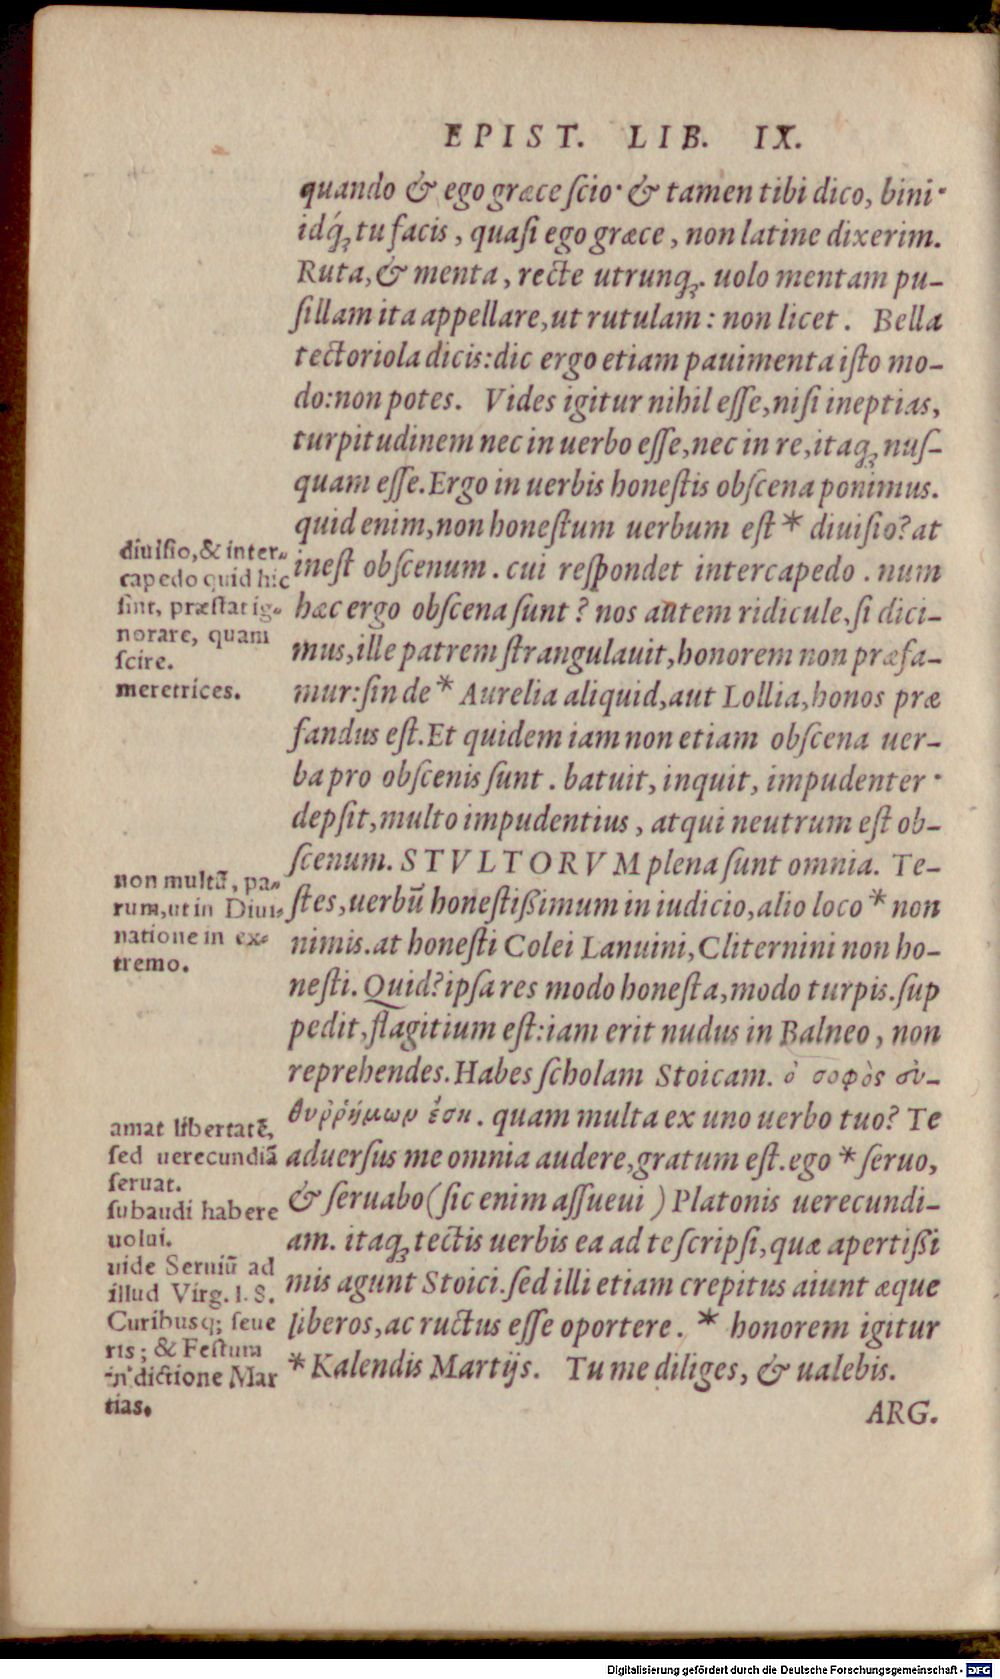 EPIST. LIB. IX.
quando & ego græce ſcio· & tamen tibi dico, bini·
idq́; tu facis, quaſi ego græce, non latine dixerim.
Ruta, & menta, recte utrunq;. uolo mentam pu-
ſillam ita appellare, ut rutulam: non licet. Bella
tectoriola dicis: dic ergo etiam pauimenta iſto mo-
do: non potes. Vides igitur nihil eſſe, niſi ineptias,
turpitudinem nec in uerbo eſſe, nec in re, itaq; nuſ-
quam eſſe. Ergo in uerbis honeſtis obſcena ponimus.
quid enim, non honeſtum uerbum eſt * diuiſio? at
ineſt obſcenum. cui reſpondet intercapedo. num
hæc ergo obſcena ſunt? nos autem ridicule, ſi dici-
mus, ille patrem ſtrangulauit, honorem non præfa-
mur: ſin de * Aurelia aliquid, aut Lollia, honos præ
fandus eſt. Et quidem iam non etiam obſcena uer-
ba pro obſcenis ſunt. batuit, inquit, impudenter·
depſit, multo impudentius, atqui neutrum eſt ob-
ſcenum. STVLTORVM plena ſunt omnia. Te-
ſtes, uerbū honeſtißimum in iudicio, alio loco * non
nimis. at honeſti Colei Lanuini, Cliternini non ho-
neſti. Quid? ipſa res modo honeſta, modo turpis. ſup
pedit, flagitium eſt: iam erit nudus in Balneo, non
reprehendes. Habes ſcholam Stoicam. ὁ σοφὸς ἐυ-
θυῤῥήμων ἔσαι. quam multa ex uno uerbo tuo? Te
aduerſus me omnia audere, gratum eſt. ego * ſeruo,
& ſeruabo (ſic enim aſſueui) Platonis uerecundi-
am. itaq; tectis uerbis ea ad te ſcripſi, quæ apertißi
mis agunt Stoici. ſed illi etiam crepitus aiunt æque
liberos, ac ructus eſſe oportere. * honorem igitur
* Kalendis Martijs. Tu me diliges, & ualebis.
ARG.
diuiſio, & inter-
capedo quid hic
ſint, præſtat ig-
norare, quam
ſcire.
meretrices.
non multū, pa-
rum, ut in Diui-
natione in ex-
tremo.
amat libertatē,
ſed uerecundiā
ſeruat.
ſubaudi habere
uolui.
uide Seruiū ad
illud Virg. l. 8.
Curibusq; ſeue
ris; & Feſtum
in dictione Mar
tias.
Digitalisierung gefördert durch die Deutsche Forschungsgemeinschaft - DFG